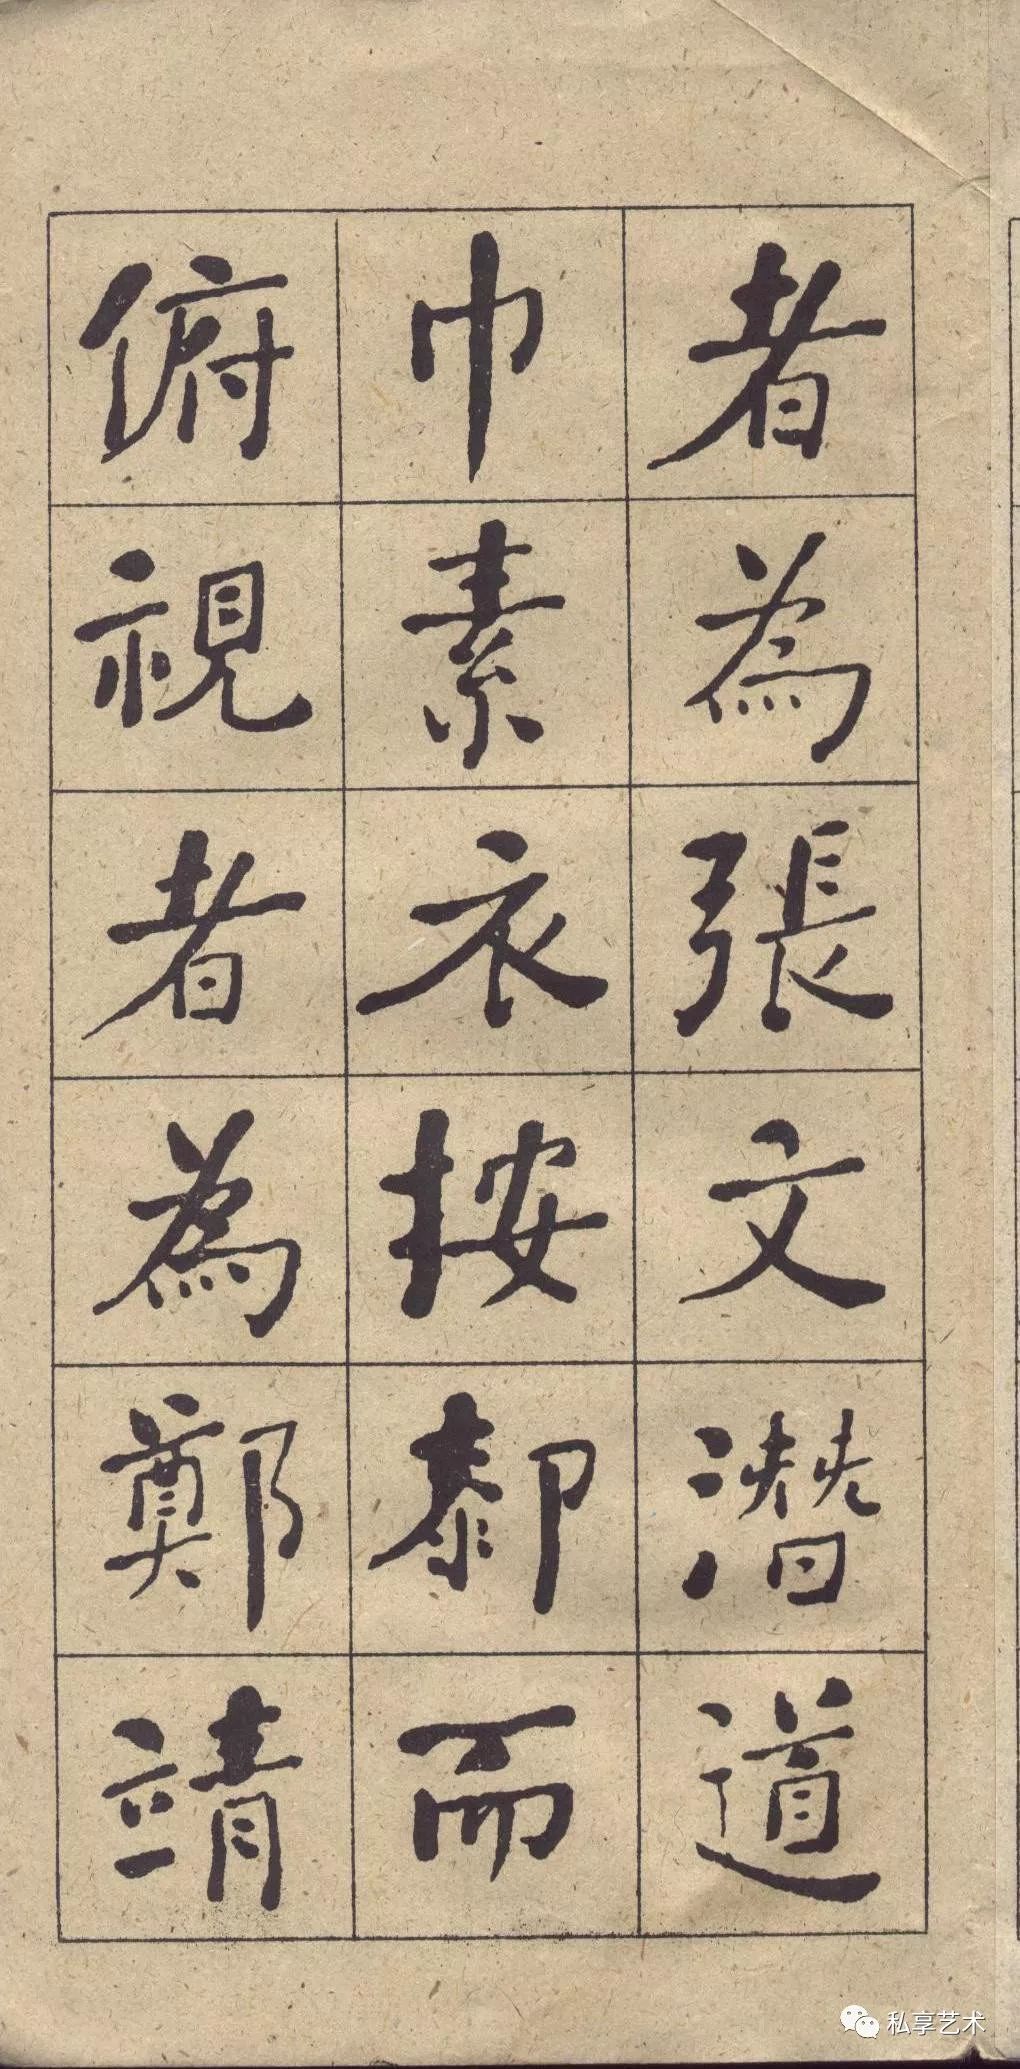 者為張文潛道
巾素衣按膝而
俯視者為鄭靖
私享艺术